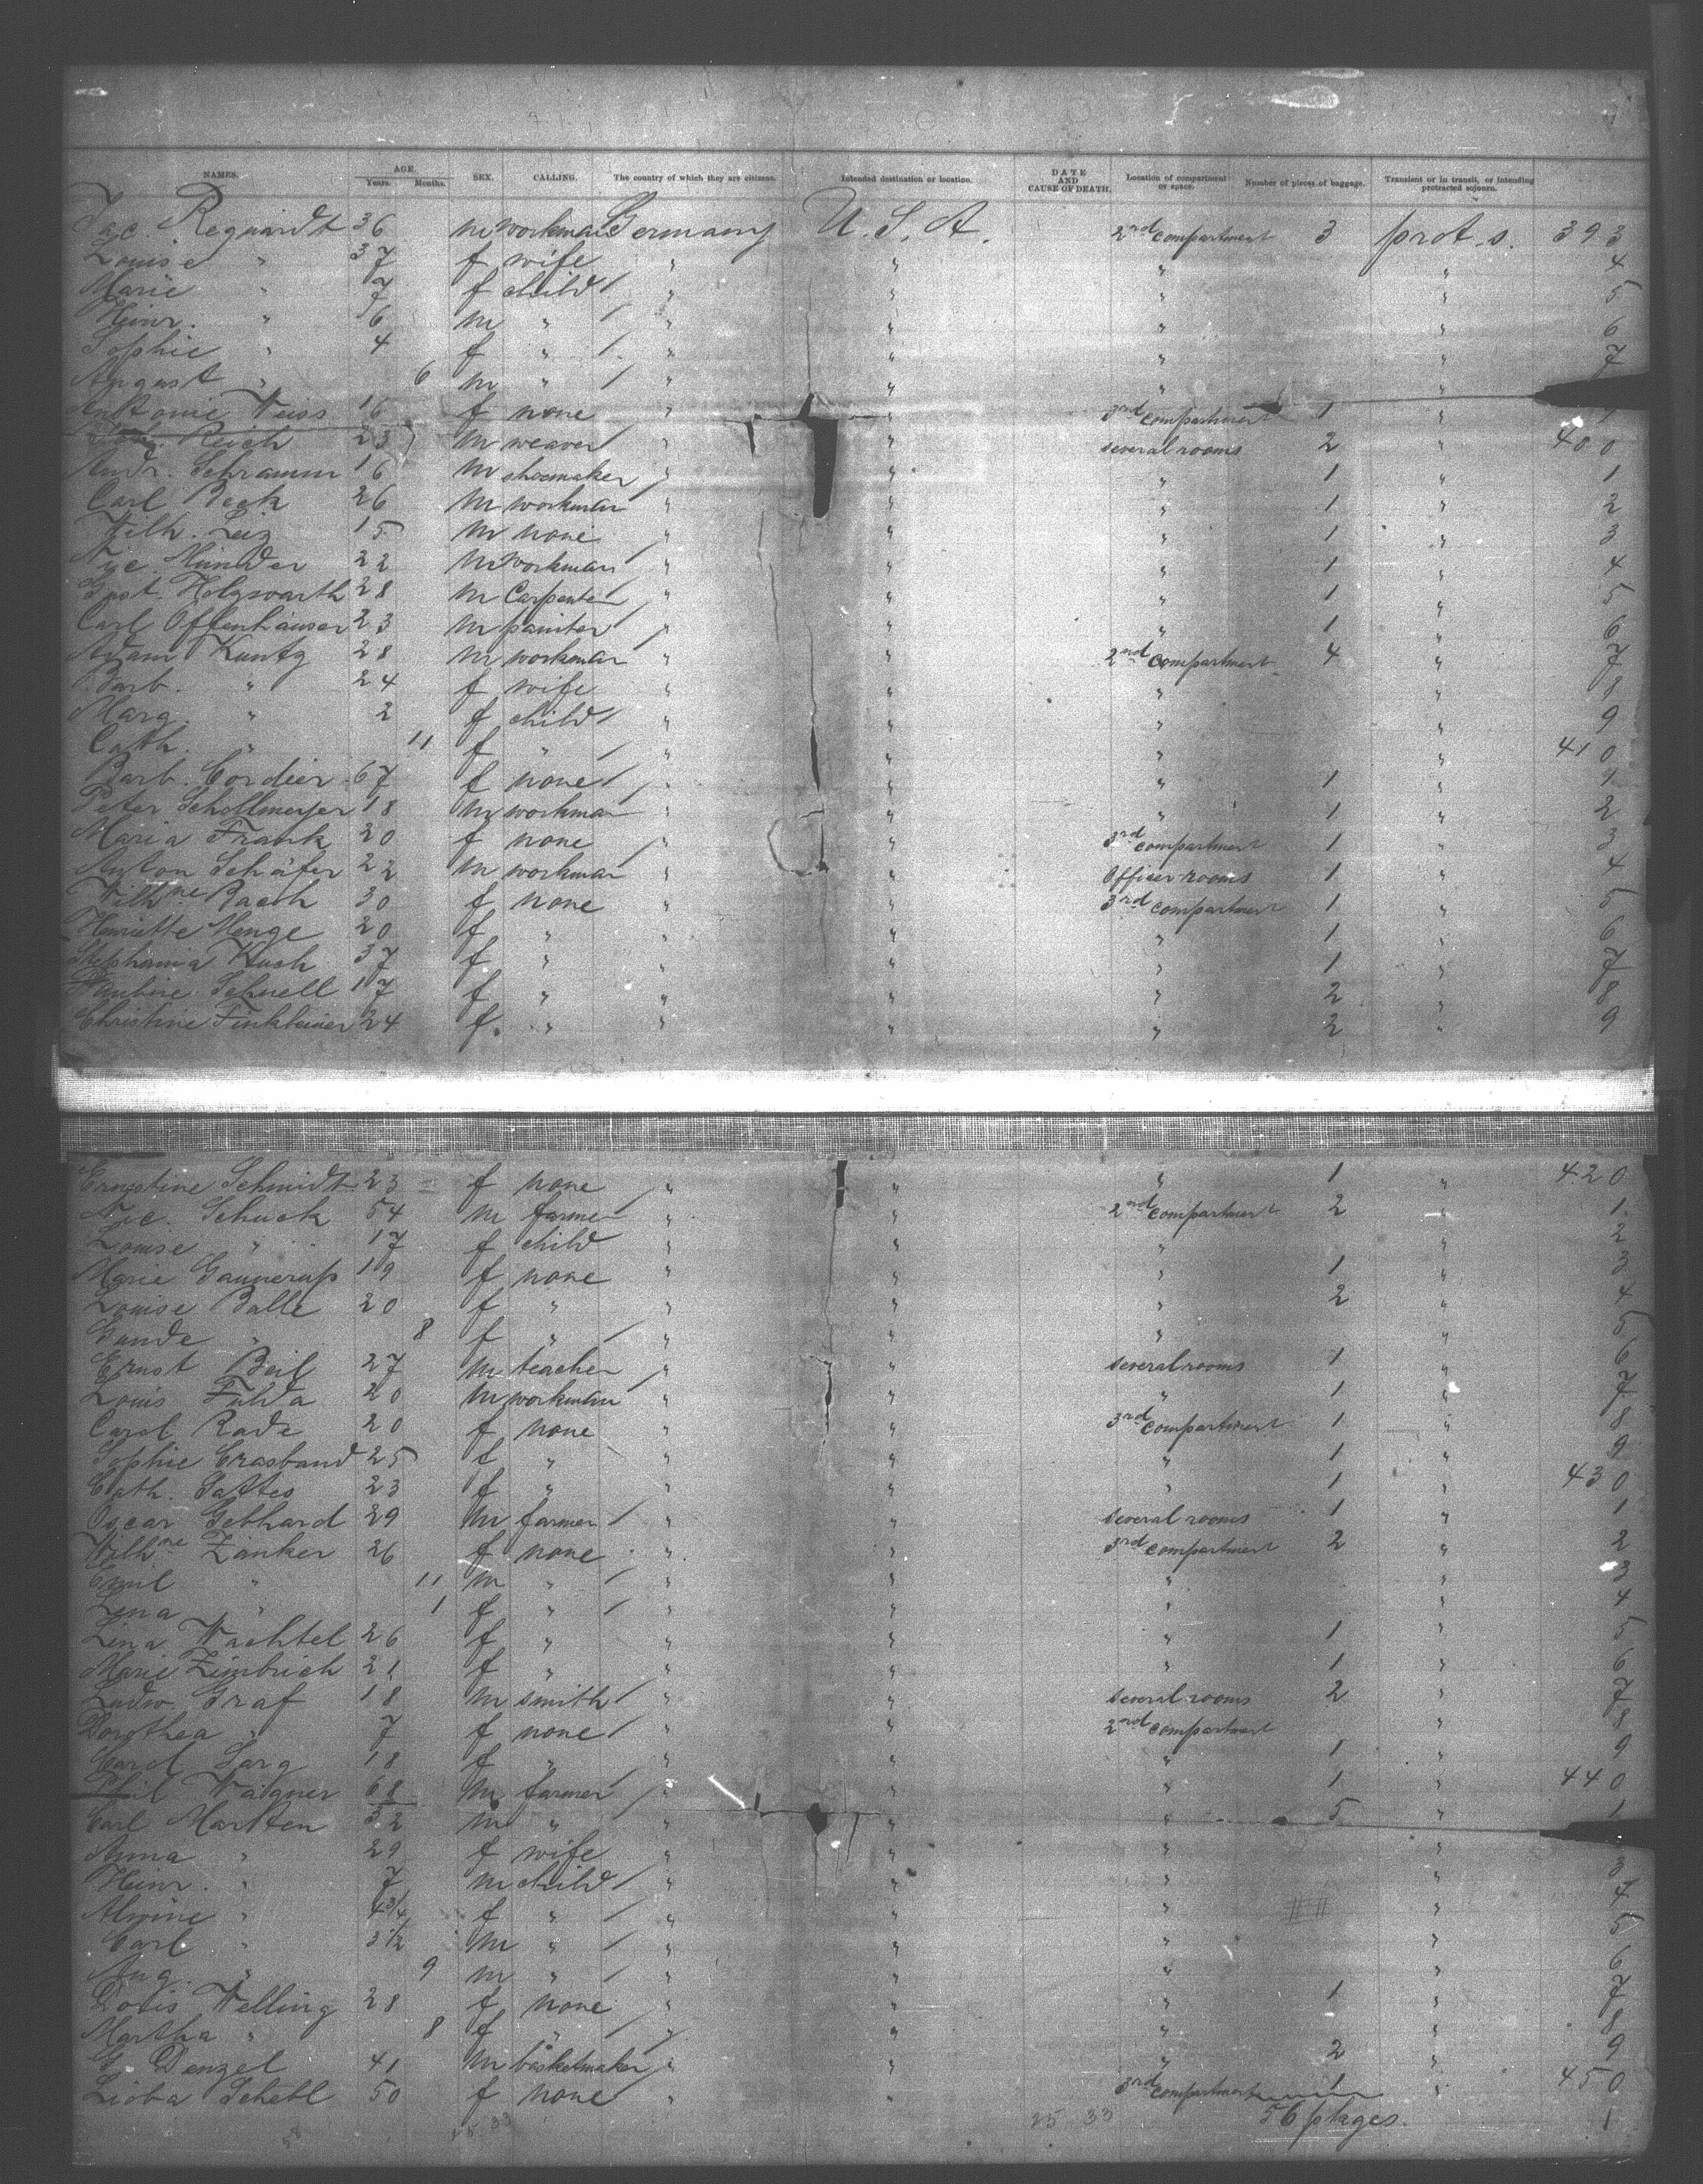 NAMES. AGE. Years. Months. SEX. CALLING. The country of which they are citizens. Intended destination or location. DATE AND CAUSE OF DEATH. Location of compartment or space. Number of pieces of baggage. Transient or in transit, or intending protracted sojourn.
Jac. Reguardt 36 m workman Germany U. S. A. 2nd compartment 3 prot. s. 393
Louise " 37 f wife " " " " 4
Marie " 7 f child / " " " " 5
Heinr. " 6 m " / " " " " 6
Sophie " 4 f " / " " " " 7
August " 6 m " / " " " "
Anttonie Weiss 16 f none " " 3rd compartment 1 "
Reich 23 m weaver " " several rooms 2 " 400
Andr. Schramm 16 m shoemaker " " " 1 " 1
Carl Beck 26 m workman " " " 1 " 2
Wilh. Leiz 15 m none " " " 1 " 3
Nic Münder 22 m workman " " " 1 " 4
Gust. Holzwarth 28 m Carpenter " " " 1 " 5
Carl Offenhäuser 23 m painter " " " 1 " 6
Adam Kuntz 28 m workman " " 2nd compartment 4 " 7
Barb. " 24 f wife " " " " 8
Marg. " 2 f child / " " " " 9
Cath. " 11 f " / " " " " 410
Barb. Cordier 67 f none / " " " 1 " 1
Peter Schollmeyer 18 m workman " " " 1 " 2
Maria Frank 20 f none " " 3rd compartment 1 " 3
Anton Schäfer 22 m workman " " Officer rooms 1 " 4
Wilhne Bach 30 f none " " 3rd compartment 1 " 5
Henriette Menge 20 f " " " " 1 " 6
Stephania Kuch 37 f " " " " 1 " 7
Pauline Schnell 17 f " " " " 2 " 8
Christine Finkbeiner 24 f. " " " " 2 " 9
Ernestine Schmidt 23 f none " " " 1 " 420
Nic. Schuck 54 m farmer " " 2nd compartment 2 " 1
Louise " 17 f child " " " " 2
Marie Gaunerup 19 f none " " " 1 " 3
Louise Balle 20 f " " " " 2 " 4
Gunde " 8 f " / " " " " 5
Ernst Beil 27 m teacher " " several rooms 1 " 6
Louis Fulda 20 m workman " " " 1 " 7
Carol Rade 20 f none " " 3rd compartment 1 " 8
Sophie Crasband 25 f " " " " 1 " 9
Cath. Gattes 23 f " " " " 1 " 430
Oscar Gebhard 29 m farmer / " " several rooms 1 " 1
Wilhne Zanker 26 f none " " 3rd compartment 2 " 2
Emil " 11 m " / " " " " 3
Lena " 1 f " / " " " " 4
Lina Wachtel 26 f " " " " 1 " 5
Marie Zimbrich 21 f " " " " 1 " 6
Ludw Graf 18 m smith / " " several rooms 2 " 7
Dorothea " 7 f none / " " 2nd compartment " 8
Carol Sarg 18 f " " " " 1 " 9
Phil Wagner 68 m farmer / " " " 1 " 440
Carl Martten 32 m " " " " 5 " 1
Anna " 29 f wife " " " "
Heinr. " 7 m child / " " " " 3
Alwine " 4 3/4 f " / " " " " 4
Carl " 3 1/2 m " / " " " " 5
Aug. " 9 m " / " " " " 6
Doris Welling 28 f none " " " 1 " 7
Martha " 8 f " / " " " " 8
G. Denzel 41 m basketmaker " " " 2 " 9
Lioba Schebl 50 f none " " 3rd compartment 1 " 450
25 33 56 plages. 1